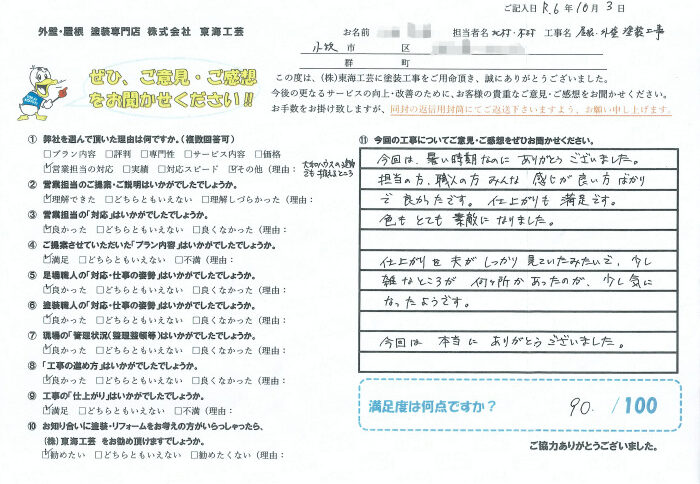 ご記入日 R.6年10月3日
外壁・屋根 塗装専門店 株式会社 東海工芸
お名前
担当者名 北村・木村 工事名 屋根・外壁塗装工事
小牧 市 区
郡 町
ぜひ、ご意見・ご感想
をお聞かせください!!
この度は、(株)東海工芸に塗装工事をご用命頂き、誠にありがとうございました。
今後の更なるサービスの向上・改善のために、お客様の貴重なご意見・ご感想をお聞かせください。
お手数をお掛け致しますが、同封の返信用封筒にてご返送下さいますよう、お願い申し上げます。
① 弊社を選んで頂いた理由は何ですか。(複数回答可)
□プラン内容 □評判 □専門性 □サービス内容 □価格
☑営業担当の対応 □実績 □対応スピード ☑その他(理由:
大和ハウスの建物
でも扱えるところ
② 営業担当のご提案・ご説明はいかがでしたでしょうか。
☑理解できた □どちらともいえない □理解しづらかった(理由:
③ 営業担当の「対応」はいかがでしたでしょうか。
☑良かった □どちらともいえない □良くなかった(理由:
④ ご提案させていただいた「プラン内容」はいかがでしたでしょうか。
☑満足 □どちらともいえない □不満(理由:
⑤ 足場職人の「対応・仕事の姿勢」はいかがでしたでしょうか。
☑良かった □どちらともいえない □良くなかった(理由:
⑥ 塗装職人の「対応・仕事の姿勢」はいかがでしたでしょうか。
☑良かった □どちらともいえない □良くなかった(理由:
⑦ 現場の「管理状況(整理整頓等)はいかがでしたでしょうか。
☑良かった □どちらともいえない □良くなかった(理由:
⑧ 「工事の進め方」はいかがでしたでしょうか。
☑良かった □どちらともいえない □良くなかった(理由:
⑨ 工事の「仕上がり」はいかがでしたでしょうか。
☑満足 □どちらともいえない □不満(理由:
⑩ お知り合いに塗装・リフォームをお考えの方がいらっしゃったら、
(株)東海工芸 をお勧め頂けますでしょうか。
☑勧めたい □どちらともいえない □勧めたくない(理由:
⑪ 今回の工事についてご意見・ご感想をぜひお聞かせください。
今回は、暑い時期なのに ありがとうございました。
担当の方、職人の方 みんな 感じが良い方ばかり
で良かったです。仕上がりも満足です。
色も とても 素敵になりました。
仕上がりを夫がしっかり見ていたみたいで、少し
雑なところが 何ヶ所かあったのが、少し気に
なったようです。
今回は 本当に ありがとうございました。
満足度は何点ですか? 90. /100
ご協力ありがとうございました。